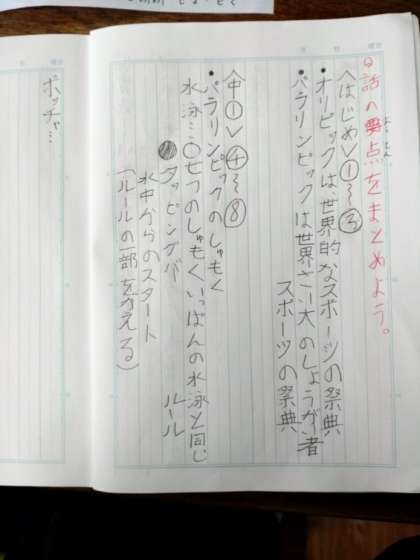 話の要点をまとめよう。
〈はじめ〉①〜③
・オリピックは、世界的なスポーツの祭典
・パラリンピックは世界さい大のしょうがい者
スポーツの祭典
〈中①〉④〜⑧
・パラリンピックのしゅもく
水泳…〇七つのしゅもく、いっぱんの水泳と同じ
ルール
●タッピングバー
水中からのスタート
(ルールの一部を考える)
ボッチャ…